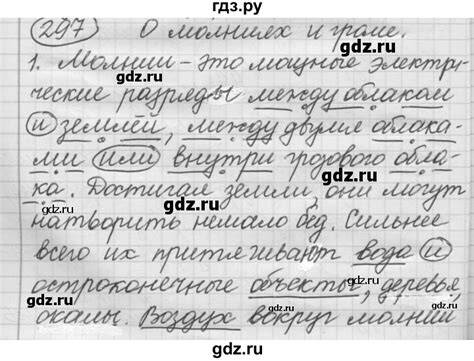 гдз.ру
297 О молниях и громе.
1. Молнии – это мощные электри-
ческие разряды между облаком
и землёй, между двумя облака-
ми или внутри грозового обла-
ка. Достигая земли, они могут
натворить немало бед. Сильнее
всего их притягивают вода и
остроконечные объекты, деревья,
скалы. Воздух вокруг молний
gdz.ru
gdz.ru
gdz.ru
gdz.ru
gdz.ru
gdz.ru
gdz.ru
gdz.ru